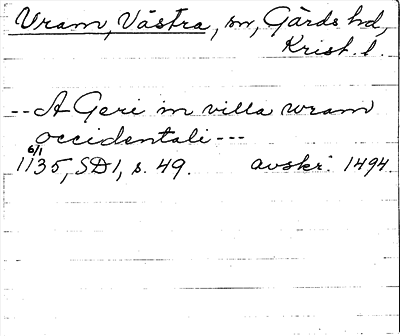 Vram, Västra, sn, Gärds hd,
Krist. l.
-- A Geri in villa wram
occidentali ---
6/1
1135, SD1, s. 49. avskr. 1494